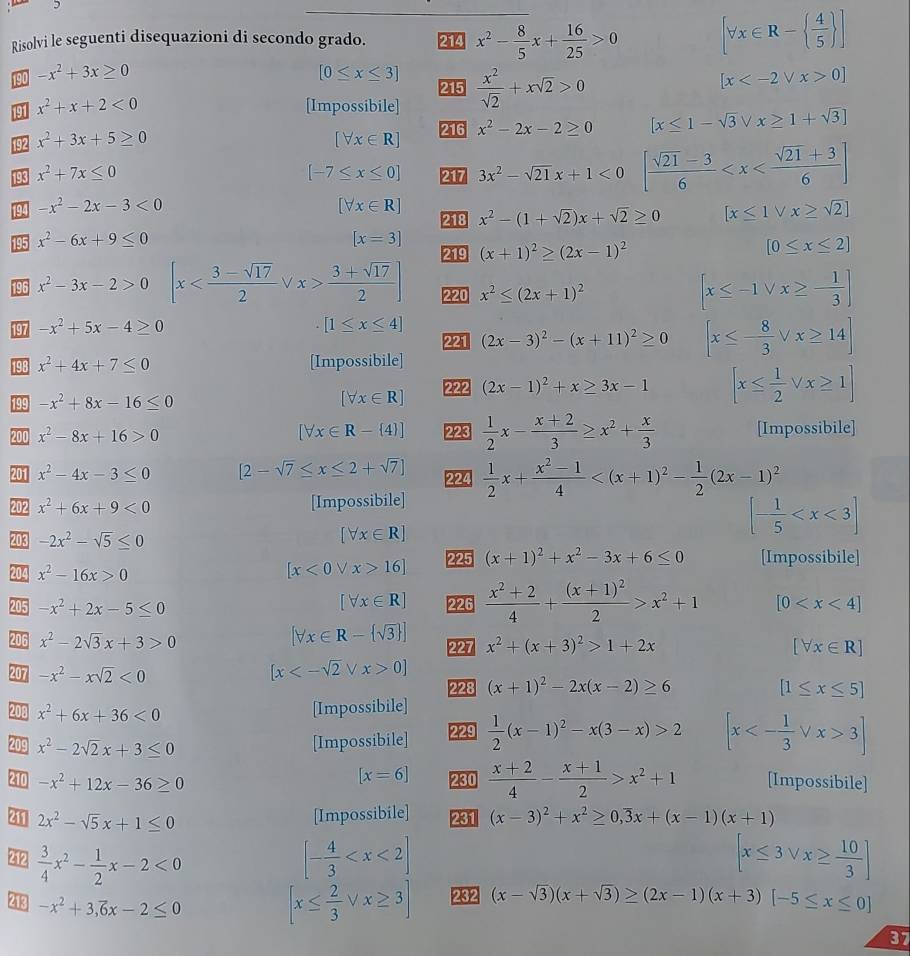 Risolvi le seguenti disequazioni di secondo grado.
190 -x² + 3x ≥ 0 [0 ≤ x ≤ 3]
191 x² + x + 2 < 0 [Impossibile]
192 x² + 3x + 5 ≥ 0 [∀x ∈ R]
193 x² + 7x ≤ 0 [-7 ≤ x ≤ 0]
194 -x² - 2x - 3 < 0 [∀x ∈ R]
195 x² - 6x + 9 ≤ 0 [x = 3]
196 x² - 3x - 2 > 0 [x < (3 - √17)/2 ∨ x > (3 + √17)/2]
197 -x² + 5x - 4 ≥ 0 [1 ≤ x ≤ 4]
198 x² + 4x + 7 ≤ 0 [Impossibile]
199 -x² + 8x - 16 ≤ 0 [∀x ∈ R]
200 x² - 8x + 16 > 0 [∀x ∈ R - {4}]
201 x² - 4x - 3 ≤ 0 [2 - √7 ≤ x ≤ 2 + √7]
202 x² + 6x + 9 < 0 [Impossibile]
203 -2x² - √5 ≤ 0 [∀x ∈ R]
204 x² - 16x > 0 [x < 0 ∨ x > 16]
205 -x² + 2x - 5 ≤ 0 [∀x ∈ R]
206 x² - 2√3x + 3 > 0 [∀x ∈ R - {√3}]
207 -x² - x√2 < 0 [x < -√2 ∨ x > 0]
208 x² + 6x + 36 < 0 [Impossibile]
209 x² - 2√2x + 3 ≤ 0 [Impossibile]
210 -x² + 12x - 36 ≥ 0 [x = 6]
211 2x² - √5x + 1 ≤ 0 [Impossibile]
212 3/4 x² - 1/2 x - 2 < 0 [-4/3 < x < 2]
213 -x² + 3,6̅x - 2 ≤ 0 [x ≤ 2/3 ∨ x ≥ 3]
214 x² - 8/5 x + 16/25 > 0 [∀x ∈ R - {4/5}]
215 x²/√2 + x√2 > 0 [x < -2 ∨ x > 0]
216 x² - 2x - 2 ≥ 0 [x ≤ 1 - √3 ∨ x ≥ 1 + √3]
217 3x² - √21x + 1 < 0 [(√21 - 3)/6 < x < (√21 + 3)/6]
218 x² - (1 + √2)x + √2 ≥ 0 [x ≤ 1 ∨ x ≥ √2]
219 (x + 1)² ≥ (2x - 1)² [0 ≤ x ≤ 2]
220 x² ≤ (2x + 1)² [x ≤ -1 ∨ x ≥ -1/3]
221 (2x - 3)² - (x + 11)² ≥ 0 [x ≤ -8/3 ∨ x ≥ 14]
222 (2x - 1)² + x ≥ 3x - 1 [x ≤ 1/2 ∨ x ≥ 1]
223 1/2 x - (x + 2)/3 ≥ x² + x/3 [Impossibile]
224 1/2 x + (x² - 1)/4 < (x + 1)² - 1/2 (2x - 1)²
[-1/5 < x < 3]
225 (x + 1)² + x² - 3x + 6 ≤ 0 [Impossibile]
226 (x² + 2)/4 + (x + 1)²/2 > x² + 1 [0 < x < 4]
227 x² + (x + 3)² > 1 + 2x [∀x ∈ R]
228 (x + 1)² - 2x(x - 2) ≥ 6 [1 ≤ x ≤ 5]
229 1/2 (x - 1)² - x(3 - x) > 2 [x < -1/3 ∨ x > 3]
230 (x + 2)/4 - (x + 1)/2 > x² + 1 [Impossibile]
231 (x - 3)² + x² ≥ 0,3̅x + (x - 1)(x + 1)
[x ≤ 3 ∨ x ≥ 10/3]
232 (x - √3)(x + √3) ≥ (2x - 1)(x + 3) [-5 ≤ x ≤ 0]
37